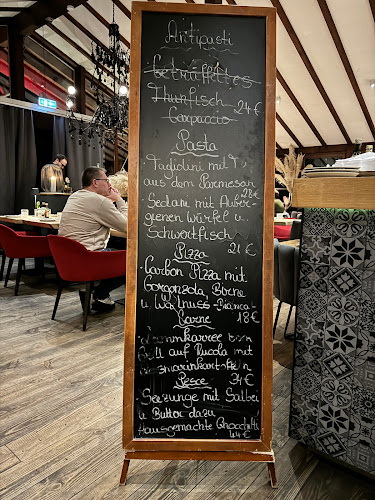 Antipasti
Getrüffeltes
Thunfisch 24€
Carpaccio
Pasta
Tagliolini mit T,
aus dem Parmesan
28€
Sedani mit Auber-
gienen Würfel u.
Schwertfisch
21€
Pizza
Carbon Pizza mit
Gorgonzola Birne
u Walnuss-Bianca
18€
Carne
Lammkarree vom
Grill auf Rucola mit
Rosmarinkartoffeln
34€
Pesce
Seezunge mit Salbei
u Butter dazu
Hausgemachte Gnocchetti
44€